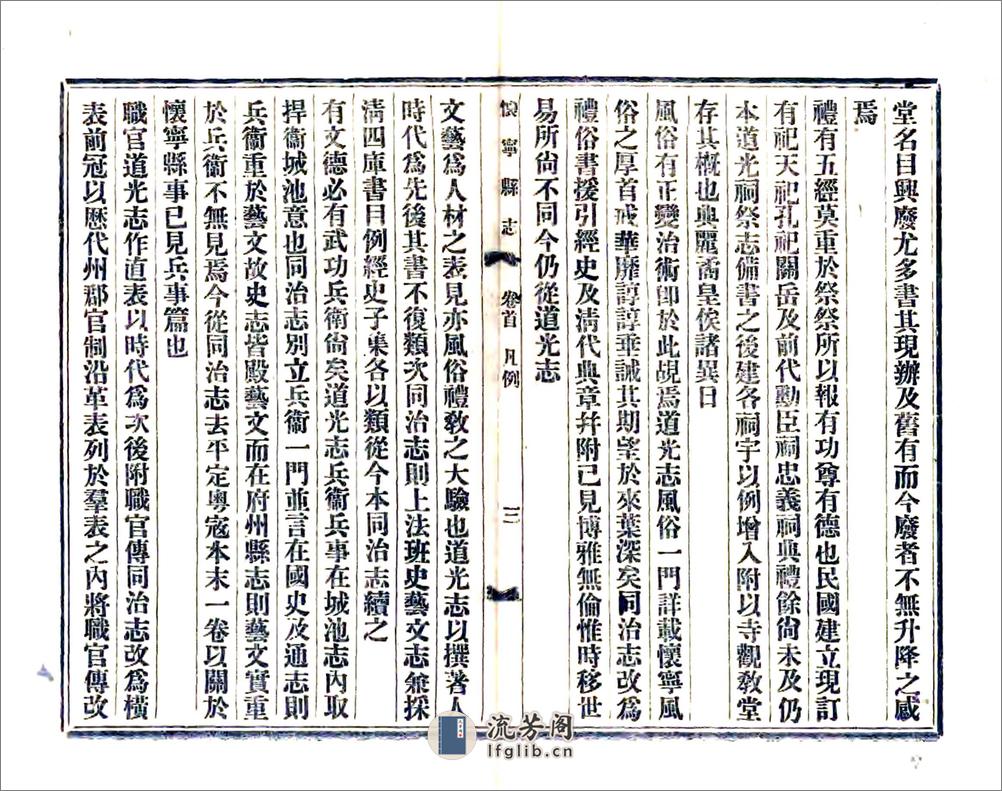 堂名目興廢尤多書其現辦及舊有而今廢者不無升降之感
焉
禮有五經莫重於祭祭所以報有功尊有德也民國建立現訂
有祀天祀孔祀關岳及前代勳臣祠忠義祠典禮餘尙未及仍
本道光祠祭志備書之後建各祠宇以例增入附以寺觀敎堂
存其槪也典麗矞皇俟諸異日
風俗有正變治術卽於此覘焉道光志風俗一門詳載懷寧風
俗之厚首戒華靡諄諄垂誡其期望於來葉深矣同治志改爲
禮俗書援引經史及淸代典章幷附已見博雅無倫惟時移世
易所尙不同今仍從道光志
懷寧縣志
卷首 凡例
三
文藝爲人材之表見亦風俗禮敎之大驗也道光志以撰著人
時代爲先後其書不復類次同治志則上法班史藝文志兼採
淸四庫書目例經史子集各以類從今本同治志續之
有文德必有武功兵衞尙矣道光志兵衞兵事在城池志內取
捍衞城池意也同治志別立兵衞一門並言在國史及通志則
兵衞重於藝文故史志皆殿藝文而在府州縣志則藝文實重
於兵衞不無見焉今從同治志去平定粵寇本末一卷以關於
懷寧縣事已見兵事篇也
職官道光志作直表以時代爲次後附職官傳同治志改爲橫
表前冠以歷代州郡官制沿革表列於羣表之內將職官傳改
流芳阁
lfglib.cn